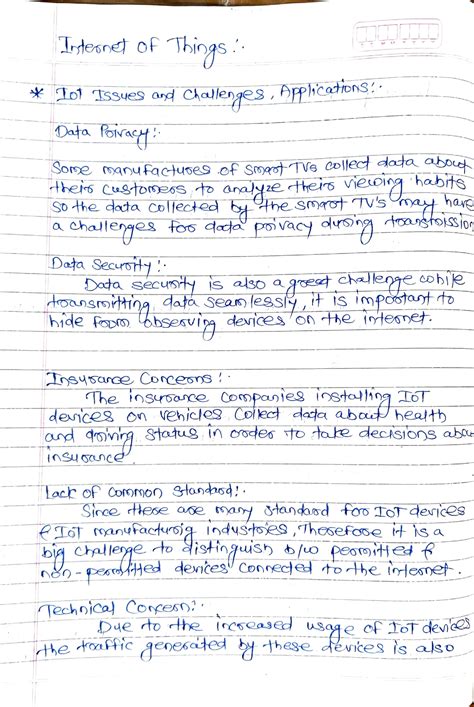 Internet of Things :-
* IoT Issues and Challenges, Applications :-
Data Privacy :-
Some manufactures of smart TVs collect data about
their customers to analyze their viewing habits
so the data collected by the smart TV's may have
a challenges for data privacy during transmission
Data Security :-
Data security is also a great challenge while
transmitting data seamlessly, it is important to
hide from observing devices on the internet.
Insurance Concerns :-
The insurance companies installing IoT
devices on vehicles collect data about health
and driving status in order to take decisions about
insurance
Lack of Common Standard :-
Since there are many standard for IoT devices
& IoT manufacturig industries, Therefore it is a
big challenge to distinguish b/w permitted &
non-permitted devices connected to the internet.
Technical Concern :-
Due to the increased usage of IoT devices
the traffic generated by these devices is also